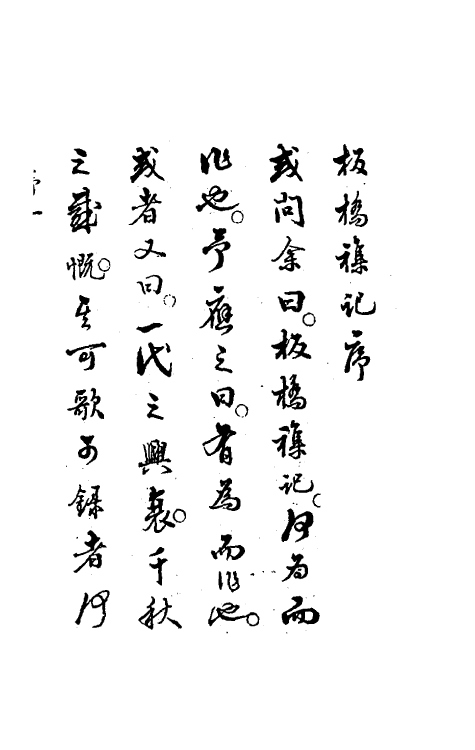 板橋雜記序
或問余曰。板橋雜記。何為而
作也。予應之曰。有為而作也。
或者又曰。一代之興衰。千秋
之感慨。其可歌可錄者何
序一